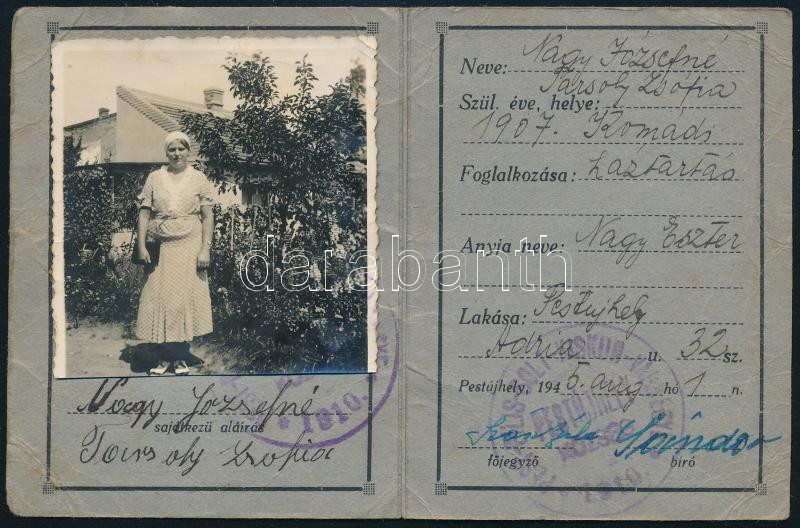 Nagy Józsefné
sajátkezű aláírás
Tarsoly Zsófia
Neve: Nagy Józsefné
Tarsoly Zsófia
Szül. éve, helye:
1907. Komádi
Foglalkozása: háztartás
Anyja neve: Nagy Eszter
Lakása: Pestujhely
Adria u. 32 sz.
Pestújhely, 1945. aug hó 1 n.
Sándor
főjegyző bíró
darabanth
1910
1910